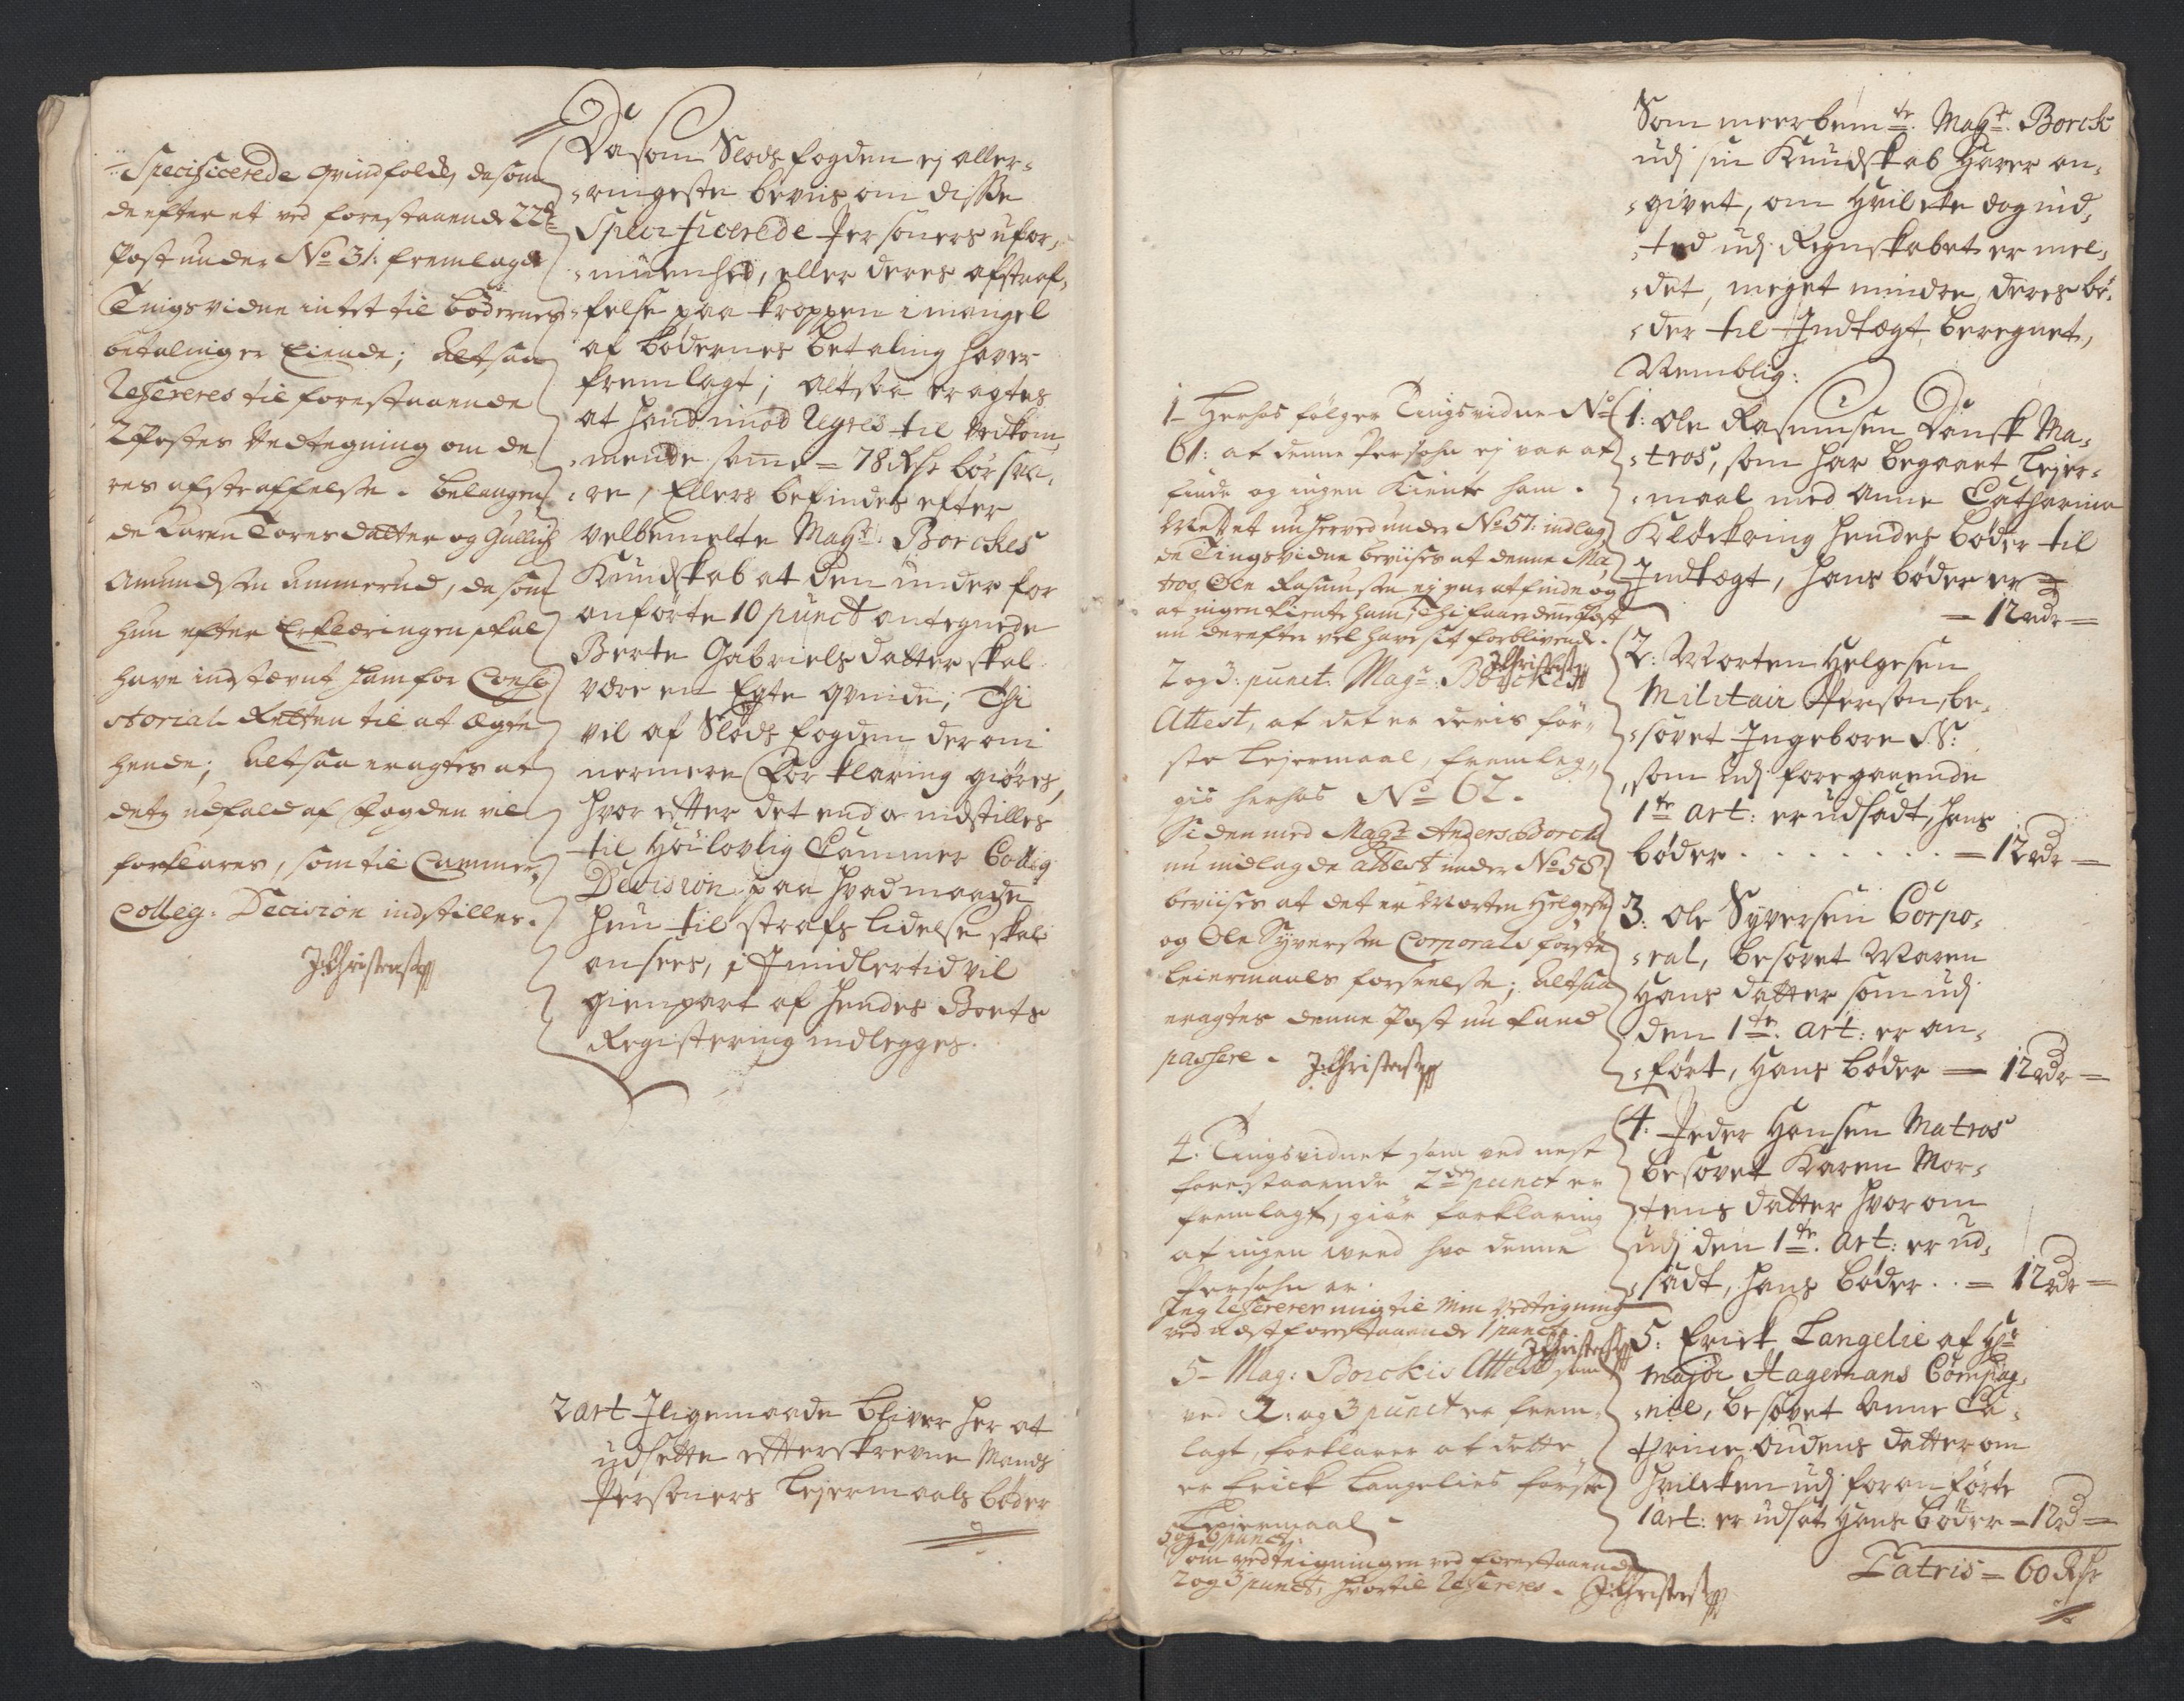 Specificerede qvindfolck, dasom
de efter et ved forestaaende 22de
Post under No 31: fremlagde
Tingsvidne intet til bødernes
betaling er Eiende; altsaa
refereres til forestaaende
Postes Vedtegning om de
res afstraffelse. belangen
de Karen Tores datter og Gullich
Amundsen Ammerud, da som
hun efter Erklæringen skal
have indstævnt ham for Consi
storial Retten til at ægte
hende; altsaa eragtes at
dets udfald af Fogden vil
forklares, som til Cammer
Colleg: Decision indstilles.
J:Christens
Da som Slods fogden ej aller-
ringeste beviis om disse
Specificerede Personers ufor-
muenhed, eller deres afstraf-
felse paa kroppen i mangel
af bødernes betaling haver
fremlagt; altsaa eragtes
at hand imod Regres til vedkom-
mende samme = 78 Rdr bør sva-
re, Ellers befindes efter
velbemelte Magr. Borckes
Kundskab at den under for
anførte 10 punct antegnede
Berte Gabriels datter skal
være en Egte qvinde; Thi
vil af Slods fogden derom
nermere Forklaring giøres,
hvor efter det endda indstilles
til Høilovlig Cammer Colleg:
Decision paa hvad maade
hun til strafs lidelse skal
ansees, i Imidlertid vil
gienpart af hendes Boets
Registering indlegges.
2 art Iligemaade bliver her at
udsette efterskrevne Mands
Personers Lejermaals bøder
Som meerbemte Magr. Borck
udj sin Kundskab haver an-
givet, om hvilcke dog ind-
tet udj Regnskabet er mel-
det, meget mindre deres bø-
der til Indtægt beregnet,
Nemblig:
1 Herhos følger Tingsvidne No
61: at denne Persohn ej var at
finde og ingen Kiente ham.
Med et nu herved under No 57: indlag
de Tingsvidne beviises at denne Ma
tros Ole Rasmussen ej var at finde og
at ingen kiente ham; Thi faaer denne Post
nu derefter vel have sit forblivende.
J:Christens
2 og 3: punct: Magr: Borckes
Attest, at det er deris før-
ste Lejermaal, fremleg-
gis herhos No 62.
Siden med Magr Anders Borck
nu indlagde attest under No 58
beviises at det er Morten Helgesen
og Ole Syversen Corporals første
leiermaals forseelse; altsaa
eragtes denne Post nu kund
passere. J:Christens
4. Tingsvidnet som ved nest
forestaaende 2den punct er
fremlagt, giør forklaring
at ingen weed hvo denne
Persohn er.
Jeg refererer mig til min vedteigning
ved næst forestaaende 1 punct.
J:Christens
5 Mag: Borckis Attest som
ved 2: og 3 punct er frem-
lagt, forklarer at dette
er Erick Langelies første
Lejermaal.
5 og 6 punct.
Som vedteigningen ved forestaaende
2 og 3 punct, hvortil refereres. J:Christens
1: Ole Rasmusen Dansk Ma-
tros, som har begaaet Lejer-
maal med Anne Catharina
Kløckring hendes bøder til
Indtægt, hans bøder er =
= 12 rdr =
2: Morten Helgesen
Militair Person, be-
sovet Ingebore S:
som udj foregaaende
1te art: er udsadt, hans
bøder . . . . . . . = 12 rdr =
3: Ole Syversen Corpo-
ral, besovet Maren
Hans datter, som udj
den 1te art: er an-
ført, Hans bøder = 12 rdr =
4: Peder Hansen Matros
besovet Karen Mor-
tens datter hvor om
udj den 1te art: er ud-
sadt, hans bøder . . = 12 rdr =
5: Erick Langelie af Hr
Major Hagemans Compag-
nie, besovet Anne Ca-
thrine Oudens datter om
hvilcken udj foranførte
1 art: er udsat Hans bøder = 12 rd =
Latris = 60 Rdr